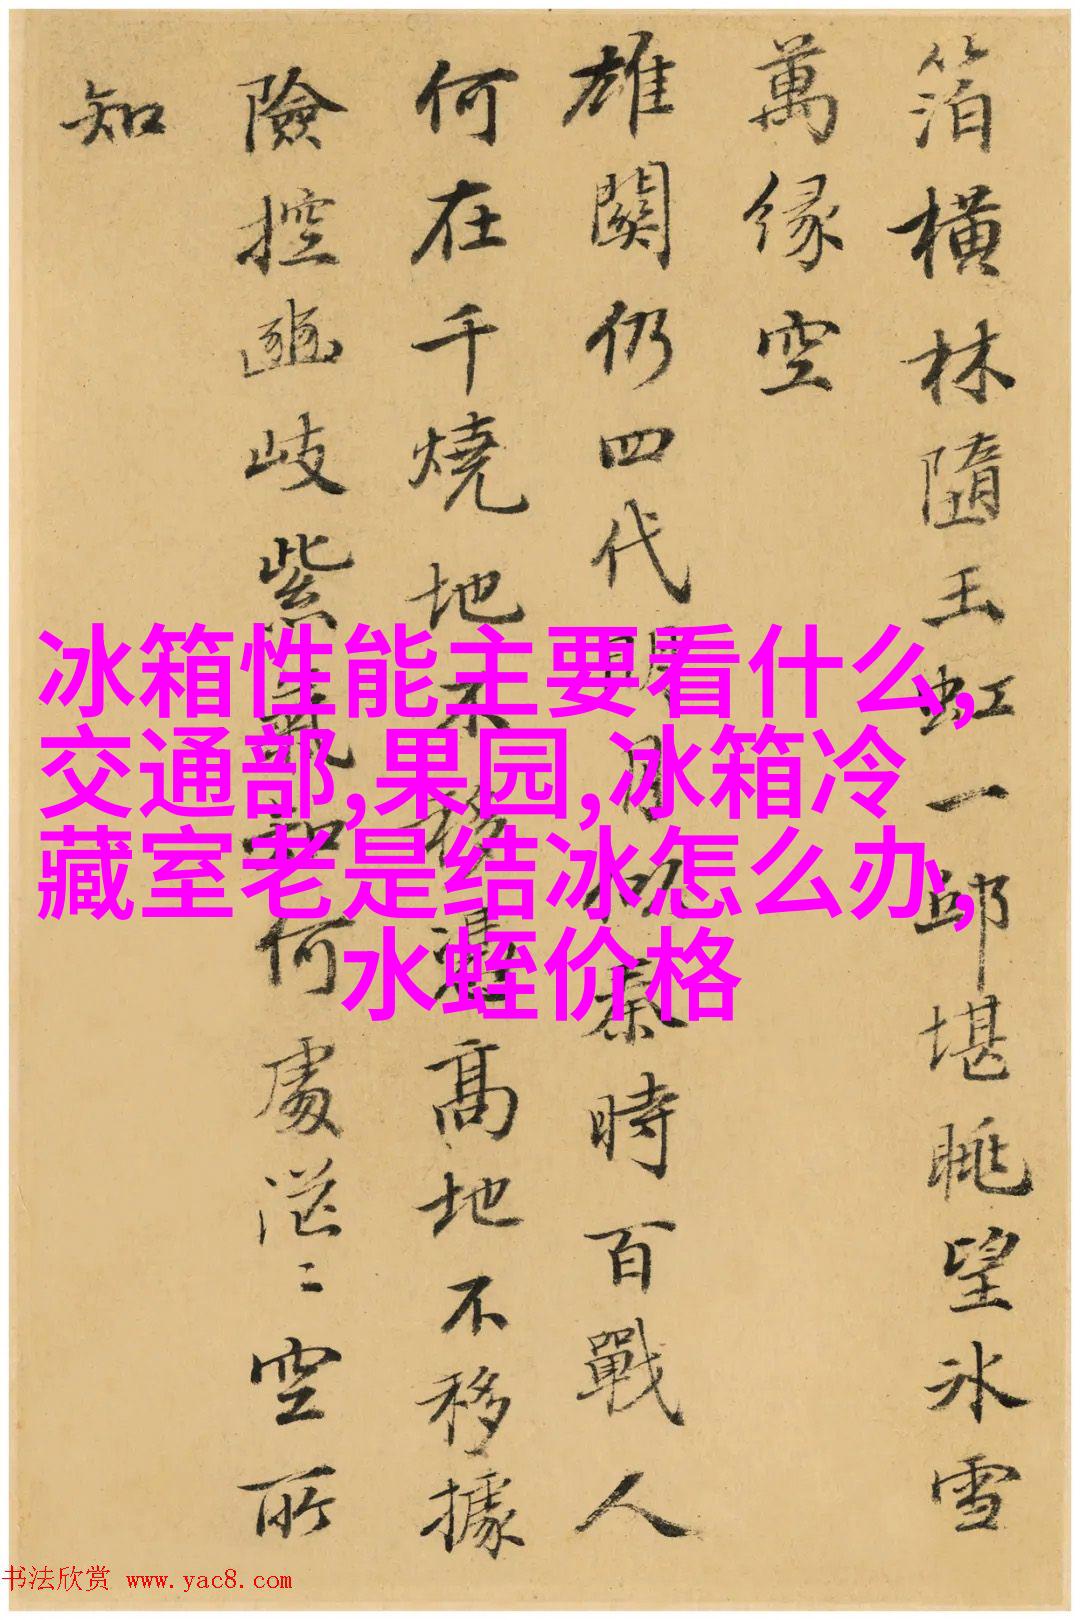 箔橫林隨玉虹一邱堪眺望冰雪
萬緣空
雄關仍四代月秦時百戰人
何在千燒地不移高地不移據
險控豳岐紫氣知何處茫〻空所
知
冰箱性能主要看什么,
交通部,果园,冰箱冷
藏室老是结冰怎么办,
水蛭价格
书法欣赏 www.yac8.com